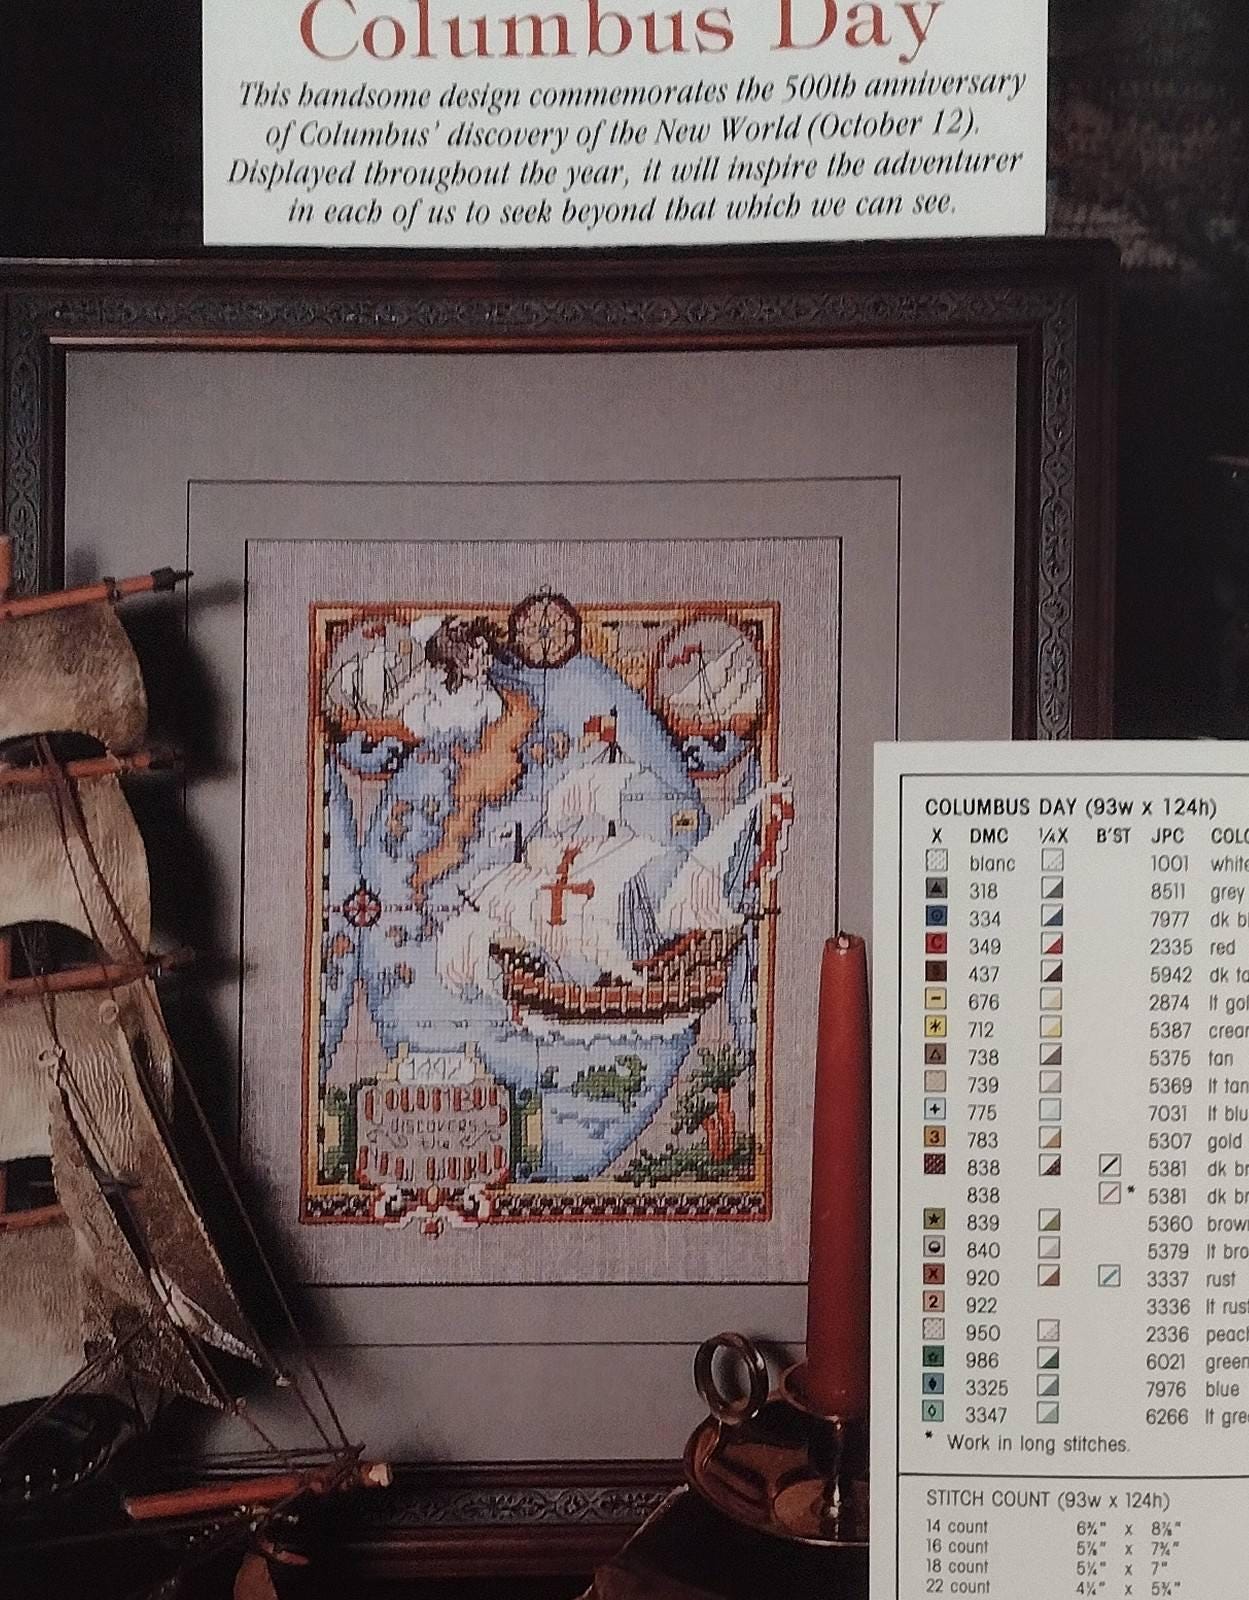 Columbus Day
This handsome design commemorates the 500th anniversary
of Columbus' discovery of the New World (October 12).
Displayed throughout the year, it will inspire the adventurer
in each of us to seek beyond that which we can see.
1492
COLUMBUS
DISCOVERS
the
COLUMBUS DAY (93w x 124h)
X DMC ¼X B'ST JPC COLO
blanc 1001 white
318 8511 grey
334 7977 dk bl
349 2335 red
437 5942 dk ta
676 2874 lt gol
712 5387 crear
738 5375 tan
739 5369 lt tan
775 7031 lt blu
783 5307 gold
838 5381 dk br
838 * 5381 dk br
839 5360 brown
840 5379 lt bro
920 3337 rust
922 3336 lt rust
950 2336 peach
986 6021 green
3325 7976 blue
3347 6266 lt gre
* Work in long stitches.
STITCH COUNT (93w x 124h)
14 count 6¾" x 8⅞"
16 count 5⅞" x 7¾"
18 count 5¼" x 7"
22 count 4¼" x 5¾"